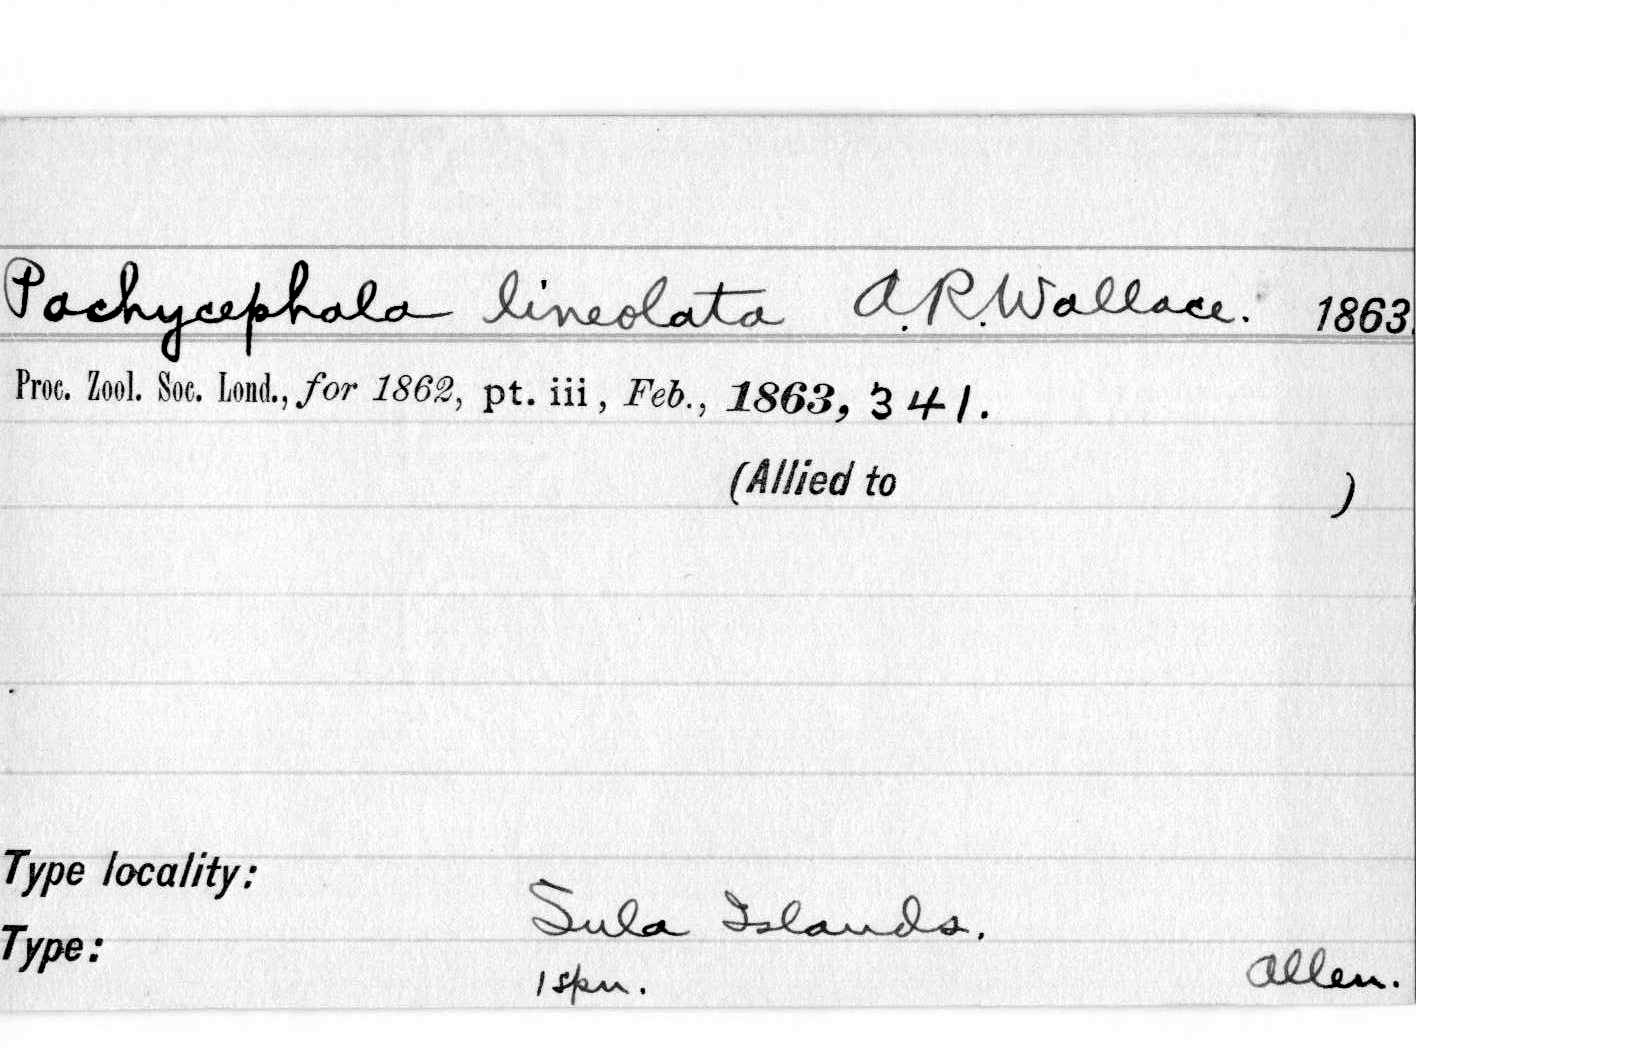 Pachycephala lineolata A.R.Wallace. 1863.
Proc. Zool. Soc. Lond., for 1862, pt. iii, Feb., 1863, 341.
(Allied to )
Type locality:
Sula Islands.
Type:
1 spn.
Allen.